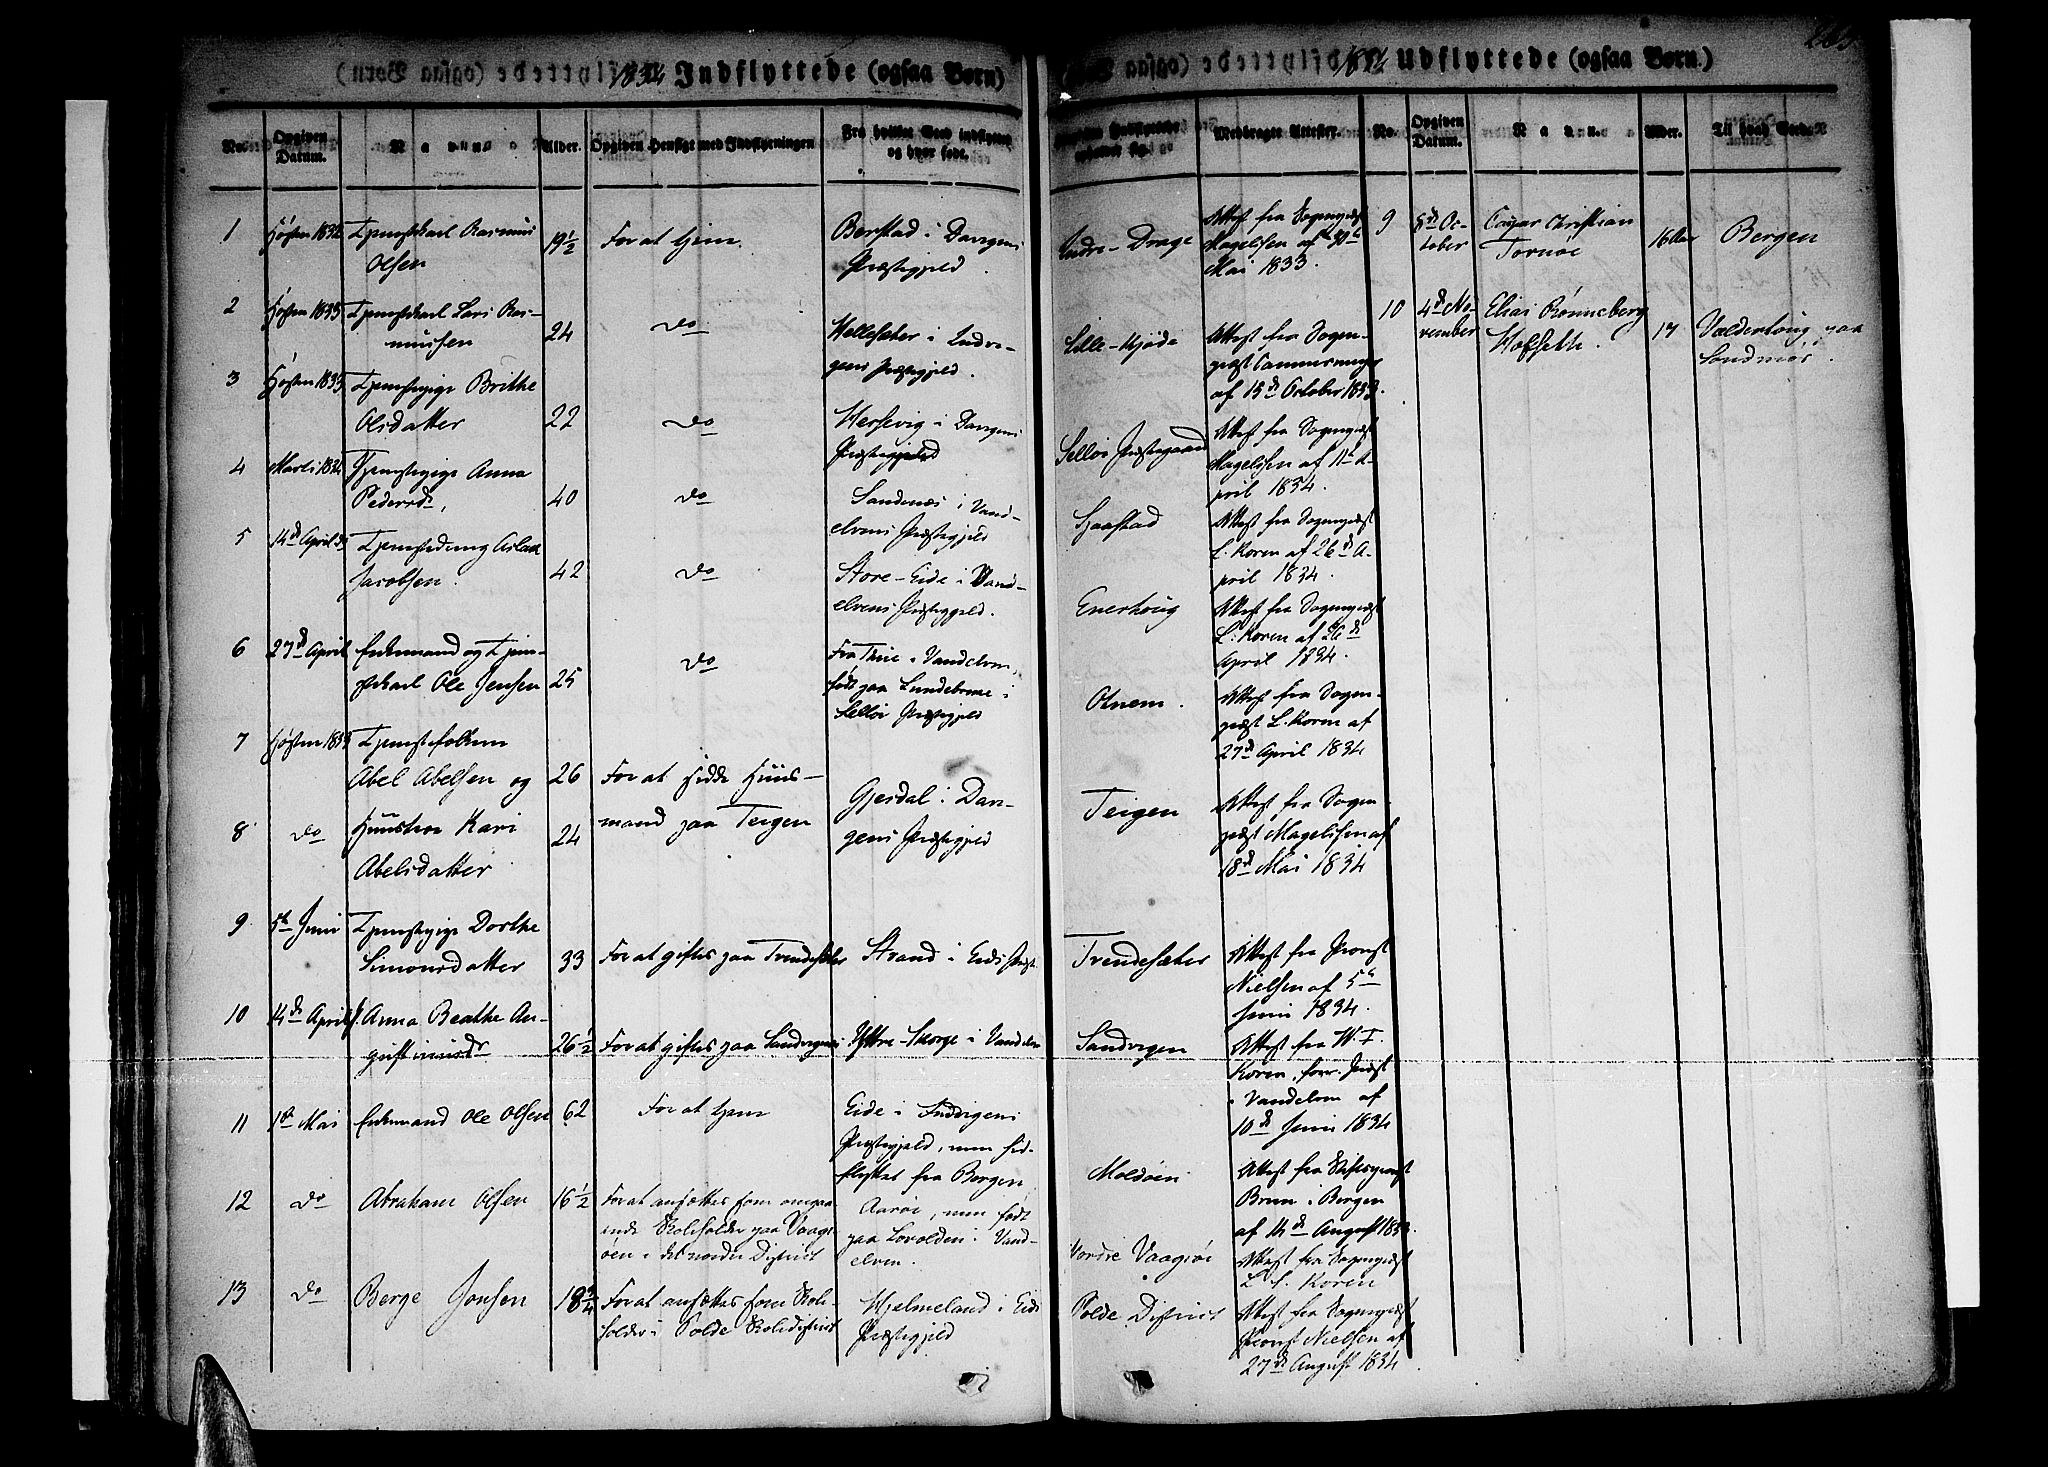 1834 Indflyttede (ogsaa Børn)
No.
Opgiven Datum.
Navn.
Alder.
Opgiven Hensigt med Indflytningen
Fra hvilket Sted indflyttet og hvor født.
Medbragte Attester.
1
Høsten 1832
Tjenestekarl Rasmus
Olsen
19 1/2
For at tjene.
Berstad i Davigens
Præstegjeld.
Indre-Drage
Attest fra Sognepræst
Magelssen af 30te
Mai 1833.
2
Høsten 1833
Tjenestekarl Lars Ras-
mussen
24
do
Hellesæter i Indvi-
gens Præstegjeld.
Lille-
Attest fra Sogne-
præst Cammermeyer
af 15de October 1833.
3
Høsten 1833
Tjenestepige Brithe
Olsdatter
22
do
Hessevig i Davigens
Præstegjeld
Selløe Præstegaard
Attest fra Sognepræst
Magelssen af 11te A-
pril 1834.
4
Marti 1834
Tjenestepige Anna
Pedersd.
40
do
Sandenæs i Vand-
elvens Præstegjeld
Sjaastad
Attest fra Sognepræst
L. Koren af 26de A-
pril 1834.
5
14de April do
Tjenestedreng Aslak
Jacobsen.
42
do
Store-Eide i Vand-
elvens Præstegjeld.
Enerhoug
Attest fra Sognepræst
L. Koren af 26de
April 1834.
6
27de April
Enkemand og Tjene-
stekarl Ole Jensen
25
do
Fra i Vandelven,
født paa Lundebrøne i
Selløe Præstegjeld
Otnem.
Attest fra Sogne-
præst L. Koren af
27de April 1834
7
Høsten 1833
Tjenestefolkene
Abel Abelsen og
26
For at sidde Huus-
mand paa Teigen
Gjesdal i Dav-
gens Præstegjeld
Teigen
Attest fra Sogne-
præst Magelssen af
18de Mai 1834
8
do
Huustroe Kari
Abelsdatter
24
9
5te Juni
Tjenestepige Dorthe
Simonsdatter
33
For at giftes paa Trendesæter
Strand i Eids Præst
Trendesæter
Attest fra Provst
Nielsen af 5te
Juni 1834.
10
14de April
Anna Beathe Au-
gustinusdr
26 1/2
For at giftes paa Sandvigen
Yttre- i Vandelven
Sandvigen
Attest fra W. F.
Koren, forr. Præst
i Vandelven af
10de Juni 1834
11
1ste Mai
Enkemand Ole Olsen
62
For at tjene
Eide i Indvigens
Præstegjeld, men sid-
flyttet fra Bergen
Moldøen
Attest fra Stiftsprovst
Brun i Bergen
af 14de August 1833.
12
do
Abraham Olsen
16 1/2
For at ansættes som omgaa-
ende Skoleholder paa Vaags-
øen i det nordre District
Aarøe, men født
paa Lovolden i Vand-
elven.
Nordre Vaagsøe
Attest fra Sognepræst
L. S. Koren
13
do
Berge Jonsen
18 3/4
For at ansættes som Skole-
holder i Polde Skoledistrict
Hjelmeland i Eids
Præstegjeld
Polde District
Attest fra Sognepræst
Provst Nielsen af
27de August 1834.
1834 Udflyttede (ogsaa Børn.)
No.
Opgiven Datum.
Navn.
Alder.
Til hvad Sted.
9
8de Oc-
tober
Caspar Christian
Tornøe
16 Aar
Bergen
10
4de No-
vember
Elias Rønneberg
Hofseth.
17
Valderhoug paa
Søndmør.